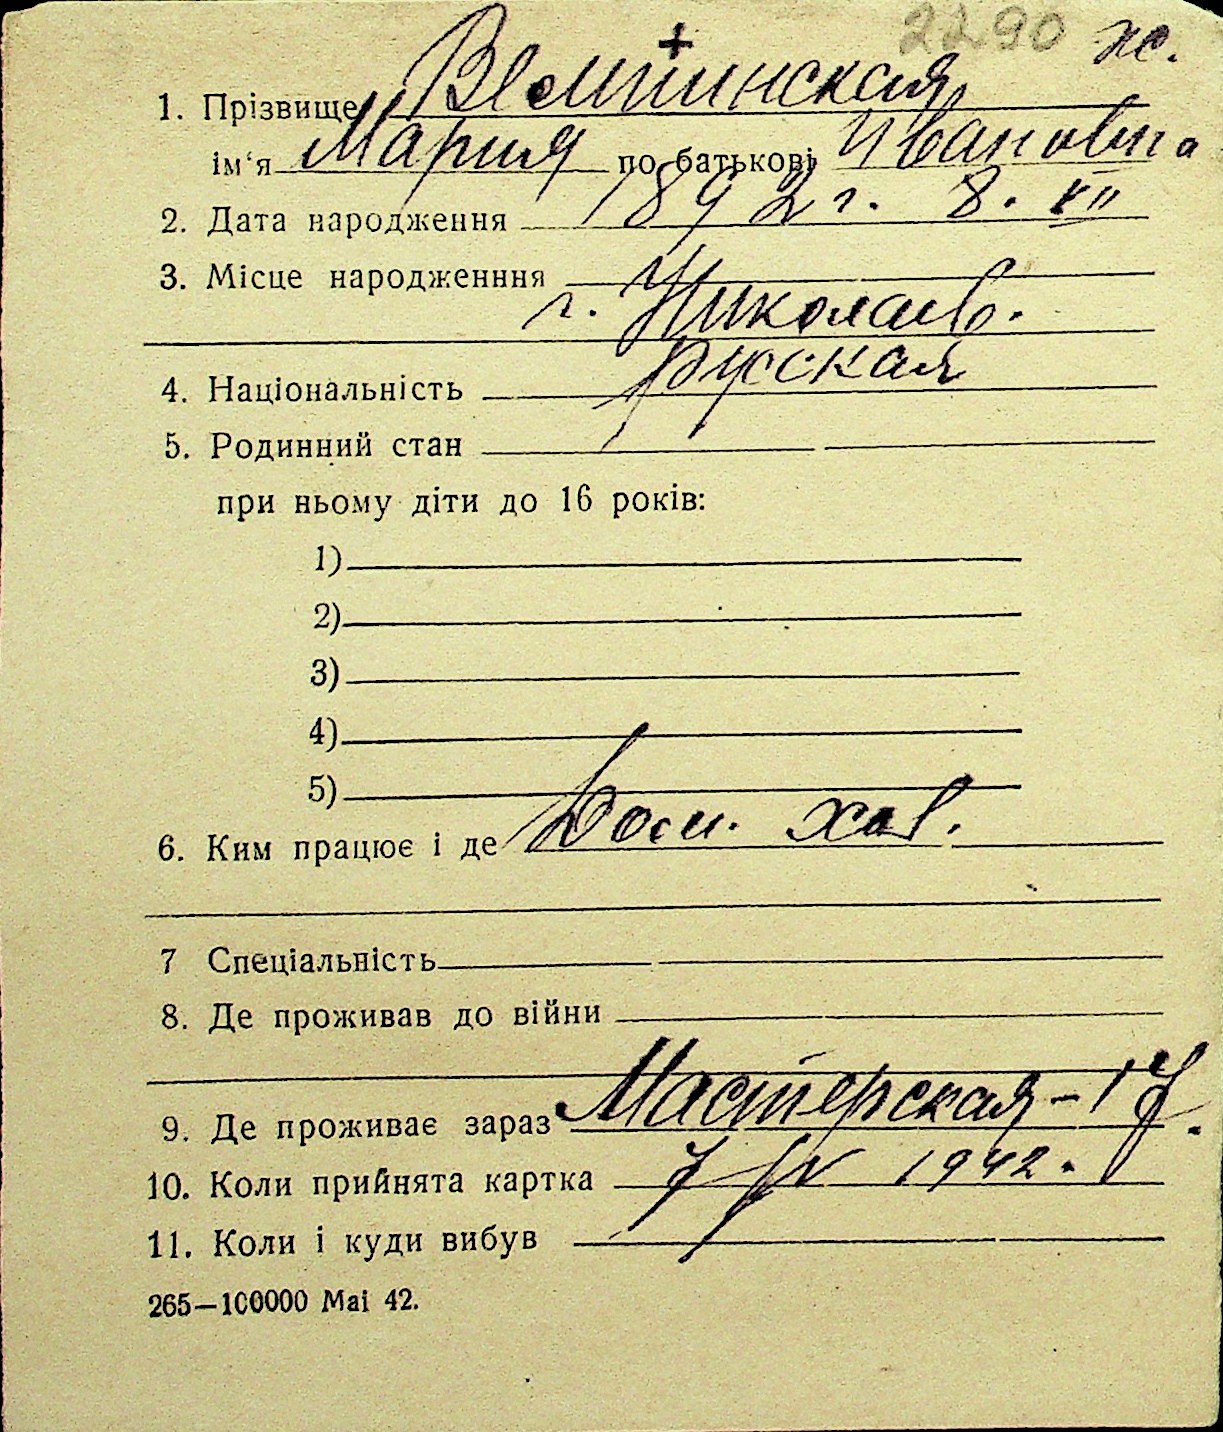 2290 ж.
+
1. Прізвище
ім‘я Мария по батькові Ивановна
2. Дата народження 1892 г. 8. XII
3. Місце народженння
г. Николаев.
4. Національність русская
5. Родинний стан
при ньому діти до 16 років:
1)
2)
3)
4)
5)
6. Ким працює і де Дом. хоз.
7 Спеціальність
8. Де проживав до війни
9. Де проживає зараз Мастерская - 17.
10. Коли прийнята картка 7/IV 1942.
11. Коли і куди вибув
265—100000 Маі 42.